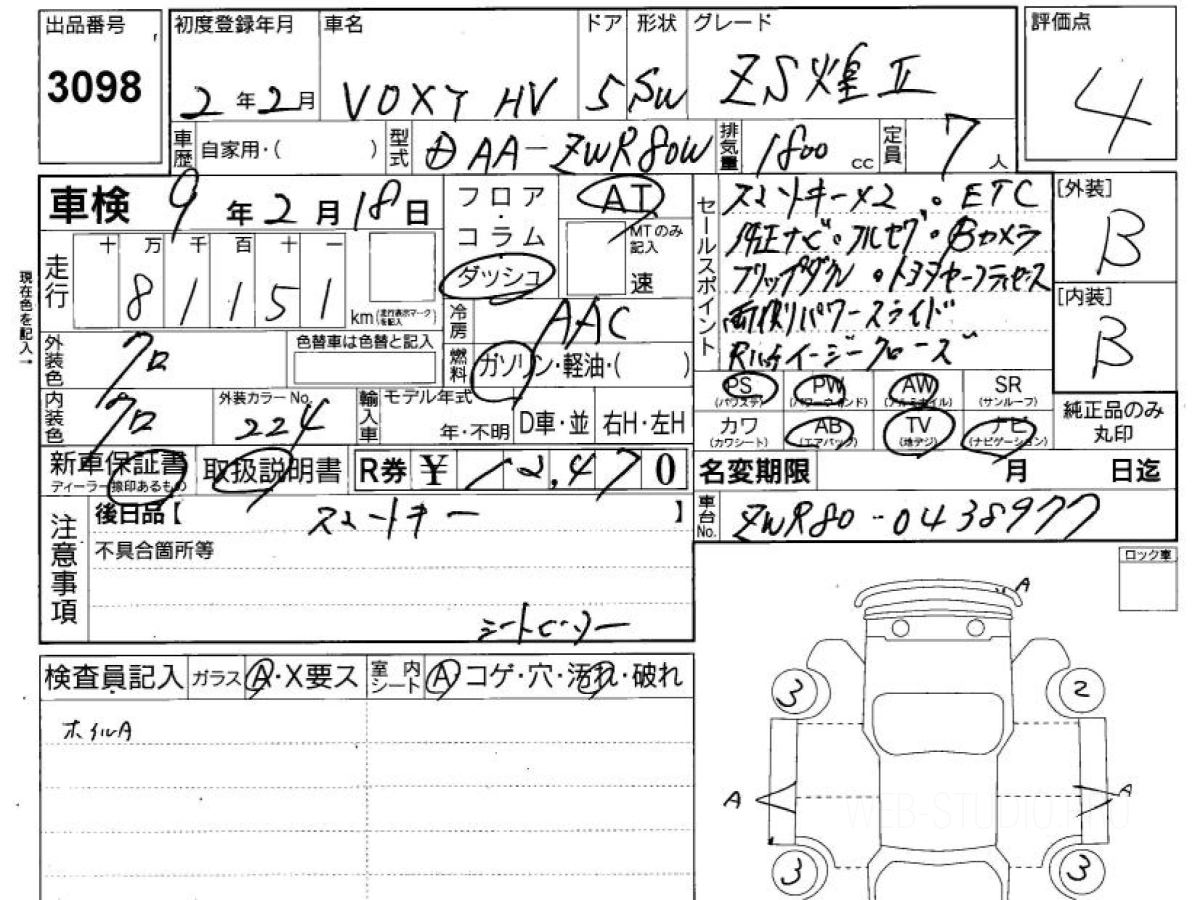 出品番号 3098
初度登録年月 2年2月
車名 VOXY HV
ドア 5
形状 SW
グレード ZS煌Ⅱ
評価点 4
車歴 自家用・( )
型式 DAA-ZWR80W
排気量 1800 cc
定員 7人
車検 9年2月18日
フロア・コラム ダッシュ
AT
MTのみ記入 速
セールスポイント
スマートキー×2 。ETC
純正ナビ。フルセグ。Bカメラ
フリップダウン 。トヨタセーフティセンス
両側パワースライド
Rハッチイージークローズ
[外装] B
[内装] B
現在色を記入→
走行 十 万 千 百 十 一
81151 km(走行表示マークを記入)
冷房 AAC
外装色 クロ
色替車は色替と記入
燃料 ガソリン・軽油・( )
内装色 クロ
外装カラーNo. 224
輸入車 モデル年式 年・不明 D車・並 右H・左H
PS (パワステ) PW (パワーウィンド) AW (アルミホイル) SR (サンルーフ)
カワ (カワシート) AB (エアバック) TV (地デジ) ナビ (ナビゲーション)
純正品のみ丸印
新車保証書 ディーラー捺印あるもの
取扱説明書
R券 ¥12,470
名変期限 月 日迄
注意事項
後日品【 スマートキー 】
車台No. ZWR80-0438977
不具合箇所等
ロック車
A
検査員記入 ガラス A・X要ス 室内シート A・コゲ・穴・汚れ・破れ
ホイルA
3 2
A A
WEB-STUDIO.PRO
3 3